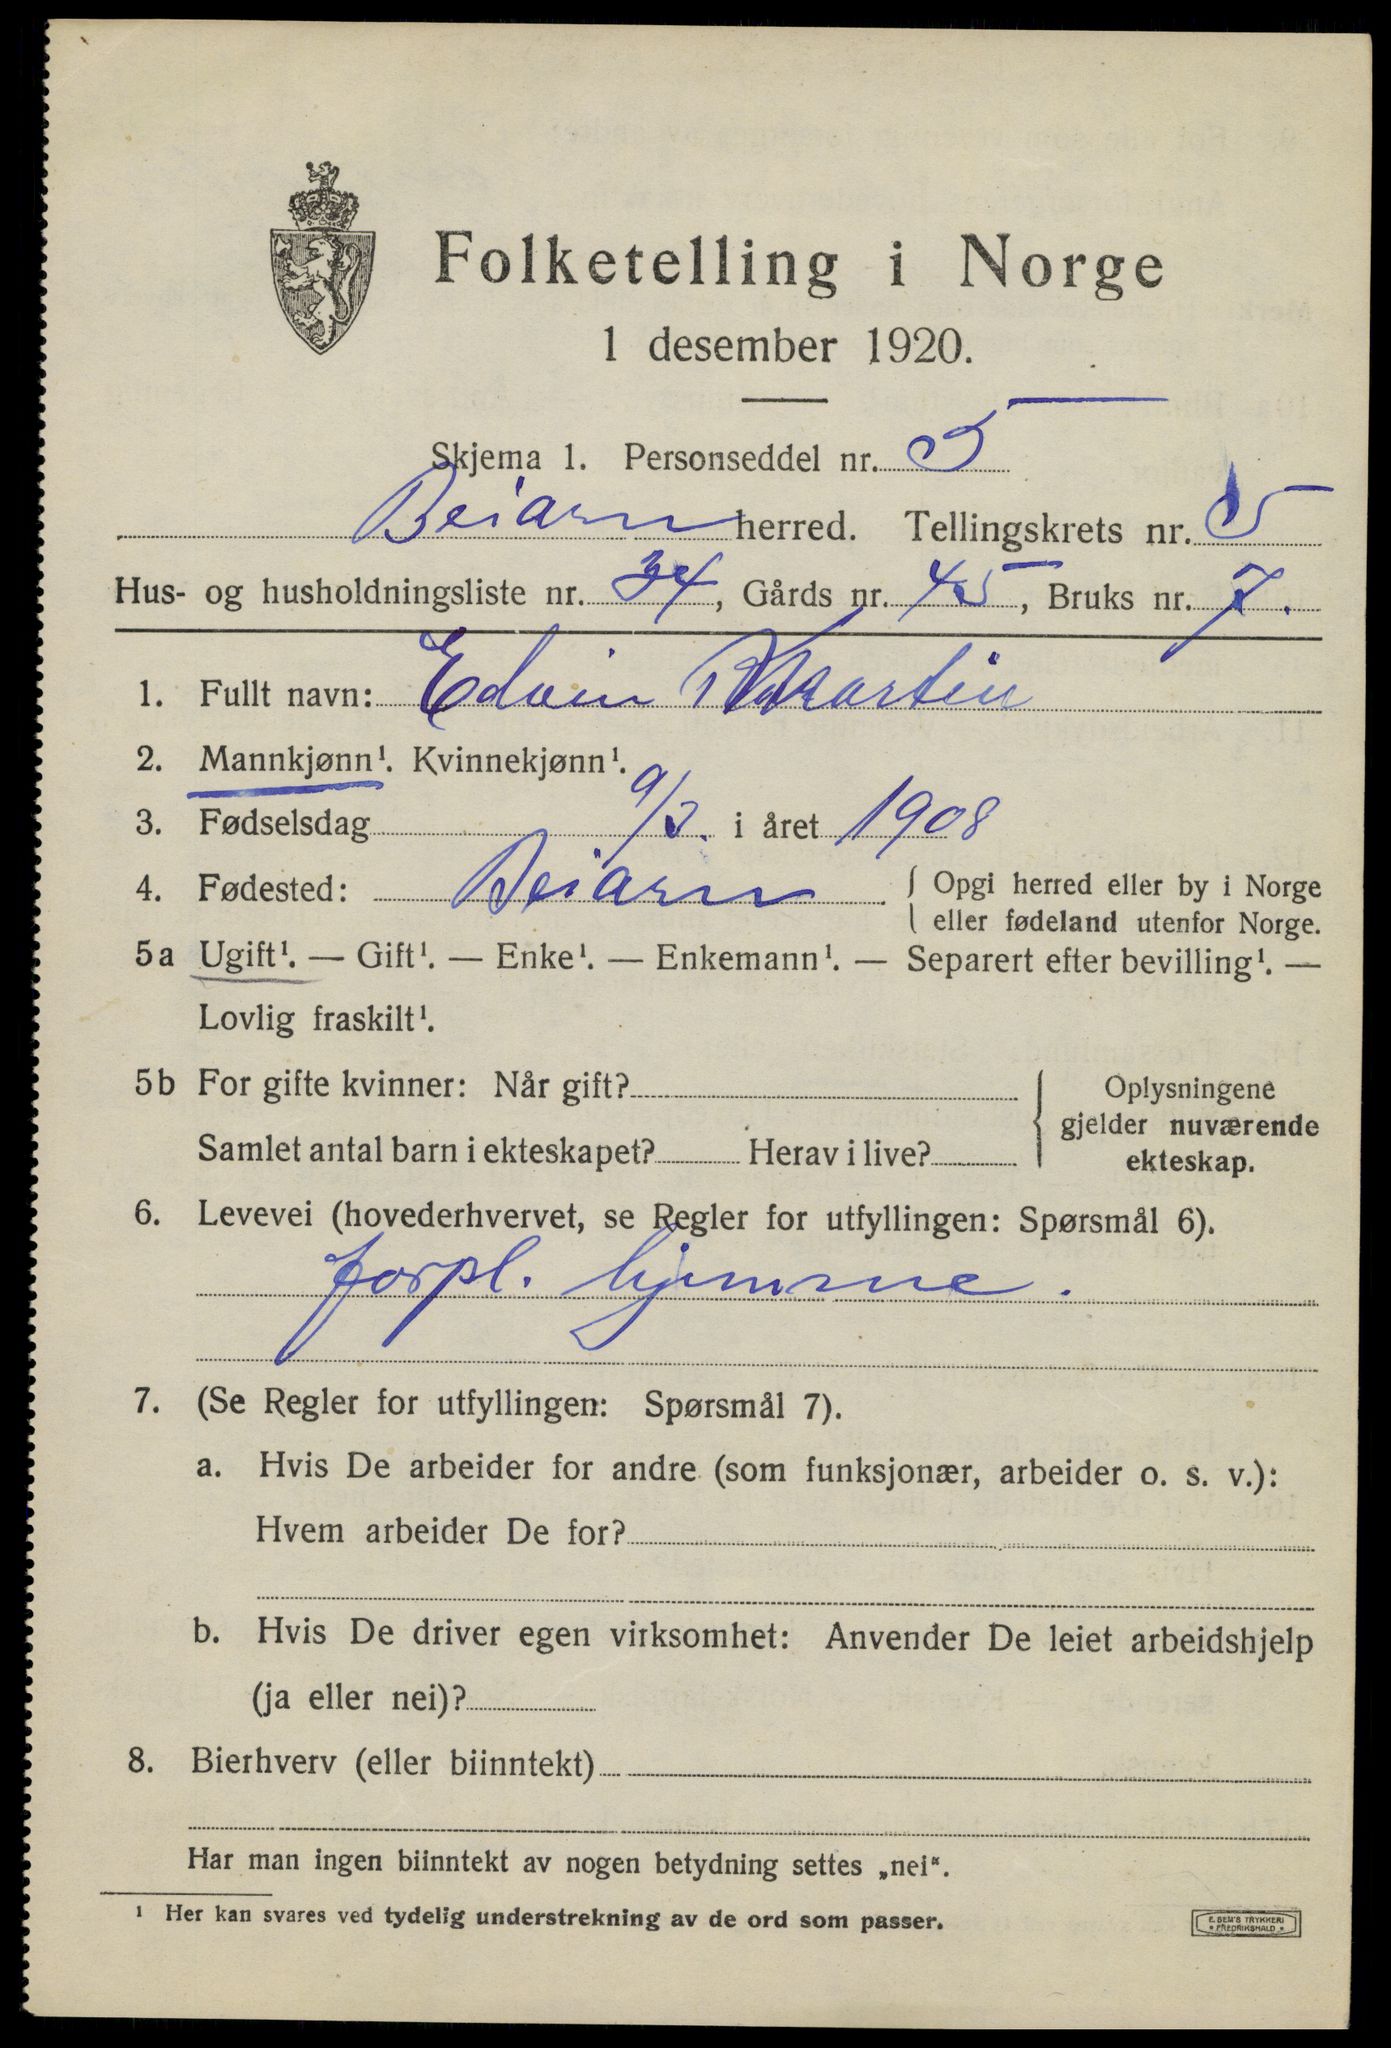 Folketelling i Norge
1 desember 1920.
Skjema 1. Personseddel nr. 5
Beiarn herred. Tellingskrets nr. 5
Hus- og husholdningsliste nr. 34, Gårds nr. 45, Bruks nr. 7.
1. Fullt navn: Edvin Martin
2. Mannkjønn¹. Kvinnekjønn¹.
3. Fødselsdag 9/3. i året 1908
4. Fødested: Beiarn { Opgi herred eller by i Norge
eller fødeland utenfor Norge.
5a Ugift¹. — Gift¹. — Enke¹. — Enkemann¹. — Separert efter bevilling¹. —
Lovlig fraskilt¹.
5b For gifte kvinner: Når gift?
Samlet antal barn i ekteskapet? Herav i live?
Oplysningene
gjelder nuværende
ekteskap.
6. Levevei (hovederhvervet, se Regler for utfyllingen: Spørsmål 6).
forpl. hjemme.
7. (Se Regler for utfyllingen: Spørsmål 7).
a. Hvis De arbeider for andre (som funksjonær, arbeider o. s. v.):
Hvem arbeider De for?
b. Hvis De driver egen virksomhet: Anvender De leiet arbeidshjelp
(ja eller nei)?
8. Bierhverv (eller biinntekt)
Har man ingen biinntekt av nogen betydning settes „nei“.
¹ Her kan svares ved tydelig understrekning av de ord som passer.
E. SEM'S TRYKKERI
* FREDRIKSHALD *